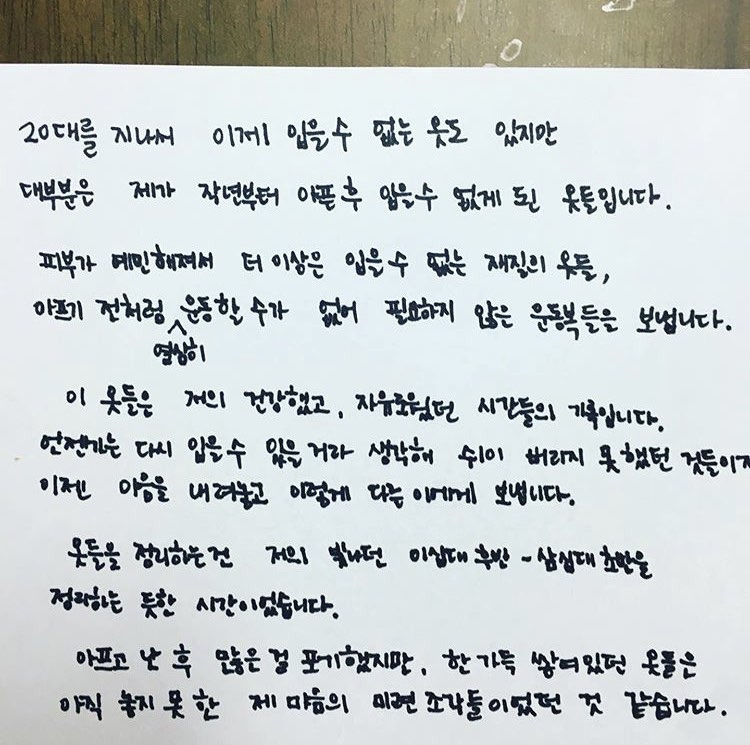 20대를 지나서 이제 입을 수 없는 옷도 있지만
대부분은 제가 작년부터 아픈 후 입을 수 없게 된 옷들입니다.
피부가 예민해져서 더 이상은 입을 수 없는 재질의 옷들,
아프기 전처럼 운동할 수가 없어 필요하지 않은 운동복들을 보냅니다.
열심히
이 옷들은 저의 건강했고, 자유로웠던 시간들의 기록입니다.
언젠가는 다시 입을 수 있을 거라 생각해 쉬이 버리지 못했던 것들이지
이젠 마음을 내려놓고 이렇게 다른 이에게 보냅니다.
옷들을 정리하는 건 저의 빛나던 이십대 후반 ~ 삼십대 초반을
정리하는 듯한 시간이었습니다.
아프고 난 후 많은 걸 포기했지만, 한가득 쌓여있던 옷들은
아직 놓지 못한 제 마음의 미련 조각들이었던 것 같습니다.